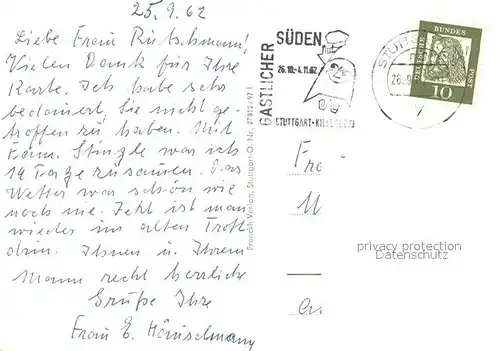 25.9.62
Liebe Frau Rutschmann!
Vielen Dank für Ihre
Karte. Ich habe sehr
bedauert, Sie nicht ge-
troffen zu haben. Mit
Fam. Stingle war ich
14 Tage zusamen. Das
Wetter war schön wie
noch nie. Jetzt ist man
wieder im alten Trott
drin. Ihnen u. Ihrem
Mann recht herzliche
Grüße Ihre
Frau E. Hänselmann
Franckh-Verlag, Stuttgart-O. Nr.
GASTLICHER
SÜDEN
26.10.-4.11.62
STUTTGART-KILLESBERG
DEUTSCHE
BUNDES
POST
10
7
privacy protection
Datenschutz